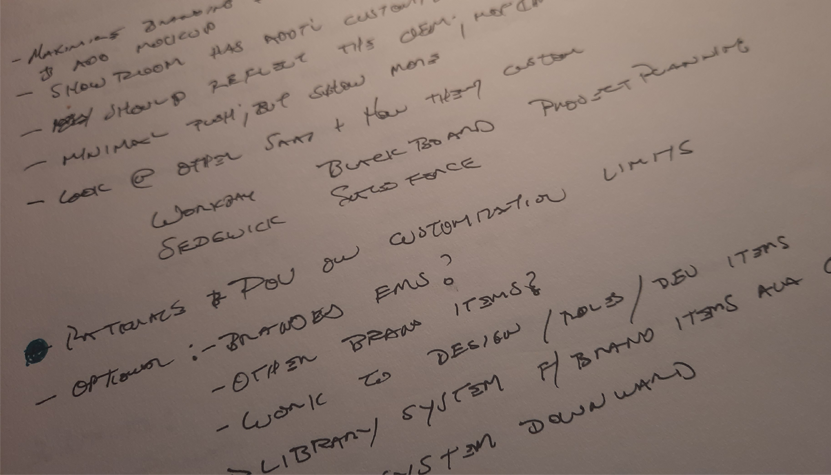 - MAXIMIZE BRANDING
& ADD MOCKUP
- SHOWROOM HAS ADDTL CUSTOM
- SHOULD REFLECT THIS
- MINIMAL PUSH, BUT SHOW MORE
- LOOK @ OTHER SAAS + HOW THEY CUSTOM
WORKDAY BLACKBOARD PROJECT PLANNING
SEDGWICK SALESFORCE
RATIONALE & POV ON CUSTOMIZATION LIMITS
- OPTIONAL :- BRANDED EMS?
- OTHER BRAND ITEMS?
- WORK TO DESIGN / / DEV ITEMS
> LIBRARY SYSTEM F/ BRAND ITEMS AKA
SYSTEM DOWNWARD